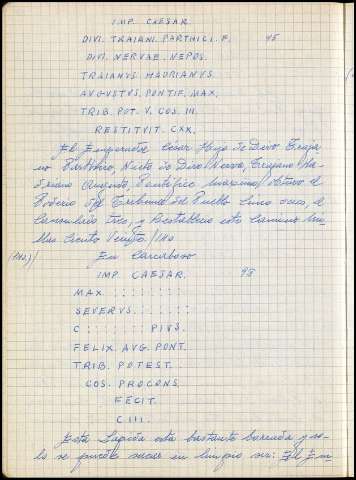 IMP. CAESAR
DIVI. TRAIANI. PARTHICI. F. 45
DIVI. NERVAE. NEPOS.
TRAIANVS. HADRIANVS.
AVGVSTVS. PONTIF. MAX.
TRIB. POT. V. COS. III.
RESTITVIT. CXX.
El Emperador César Hijo de Divo Traja
no Parthico, Nieto de Divo Nerva, Trajano Ha-
driano Augusto, Pontifice maximo, tuvo el
Poderío del Tribunal del Pueblo cinco veces, el
Consulado tres, y Restableció este Camino Mi-
llas Ciento Veinte. / 140
(140) / En Carcaboso
IMP. CAESAR. 98
MAX. : : : : : : :
SEVERVS. : : : : :
C : : : : : : PIVS.
FELIX. AVG. PONT.
TRIB. POTEST. .
COS. PROCONS.
FECIT.
CIII.
Esta Lapida está bastante borrada y so-
lo se puede sacar en limpio así: El Em-